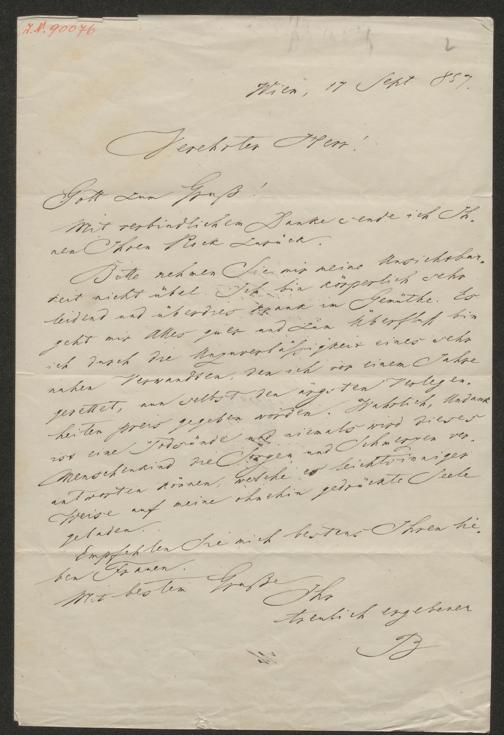 I.N. 90076
2
Wien, 17 Sept 857.
Verehrter Herr!
Gott zum Gruß!
Mit verbindlichem Danke sende ich Ih-
nen Ihren Rock zurück.
Bitte nehmen Sie mir meine Unsichtbar-
keit nicht übel. Ich bin körperlich sehr
leidend und überdies krank im Gemüthe. Es
geht mir Alles quer und zum Überfluß bin
ich durch die Unzuverläßigkeit eines sehr
nahen Verwandten, den ich vor einem Jahre
gerettet, nun selbst den ärgsten Verlegen-
heiten preis gegeben worden. Wahrlich, Undank
ist eine Todsünde und niemals wird dieses
Menschenkind die Sorgen und Schmerzen ver-
antworten können, welche es leichtsinniger
Weise auf meine ohnehin gedrückte Seele
geladen.
Empfehlen Sie mich bestens Ihren lie-
ben Frauen.
Mit bestem Gruße
Ihr
treulich ergebener
B